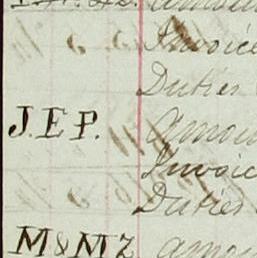 Invoice
Duties
J.E P. amou
Invoic
Duties
M & M Z amou